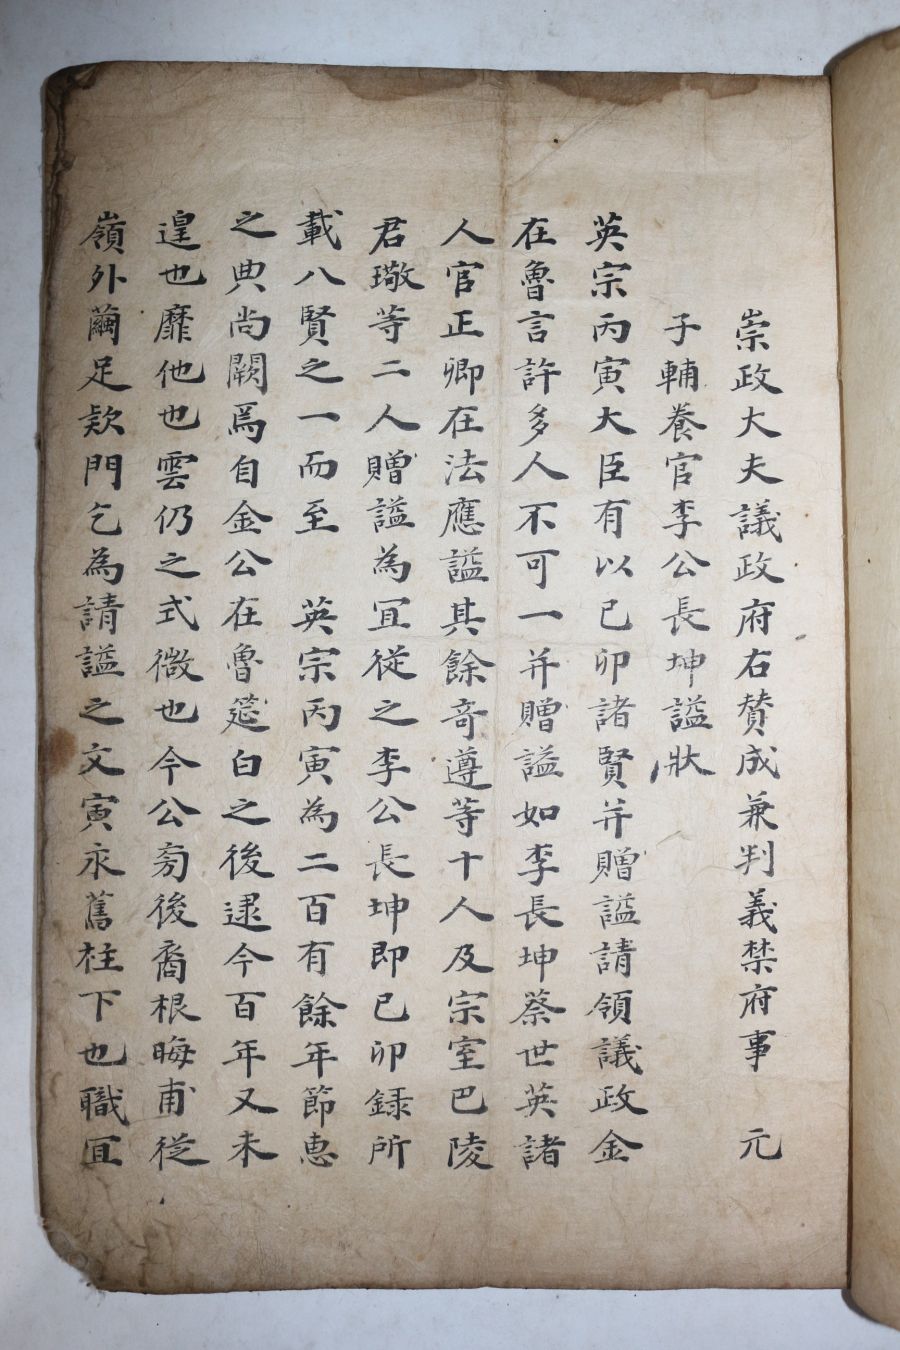 崇政大夫議政府右賛成兼判義禁府事　元
子輔養官李公長坤諡狀
英宗丙寅大臣有以己卯諸賢并贈諡請領議政金
在魯言許多人不可一并贈諡如李長坤蔡世英諸
人官正卿在法應諡其餘竒遵等十人及宗室巴陵
君璥等二人贈諡為宜從之李公長坤即己卯録所
載八賢之一而至　英宗丙寅為二百有餘年節惠
之典尚闕焉自金公在魯筵白之後逮今百年又未
遑也靡他也雲仍之式微也今公旁後裔根晦甫從
嶺外繭足欵門乞為請諡之文寅永舊柱下也職宜